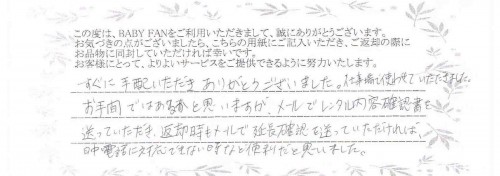 この度は、BABY FANをご利用いただきまして、誠にありがとうございます。
お気づきの点がございましたら、こちらの用紙にご記入いただき、ご返却の際に
お品物に同封していただければ幸いです。
お客様にとって、よりよいサービスをご提供できるように努力いたします。
すぐに手配いただきありがとうございました。仕事場で使わせていただきました。
お手間ではあるかと思いますが、メールでレンタル内容確認書を
送っていただき、返却時もメールで延長確認を送っていただければ、
日中電話に対応できない時など便利だと思いました。